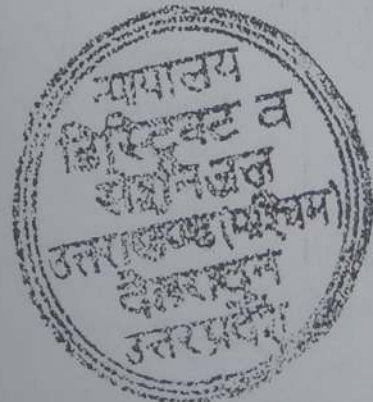 न्यायालय
डिस्ट्रिक्ट व
उत्तराखण्ड (पश्चिम)
देहरादून
उत्तरप्रदेश